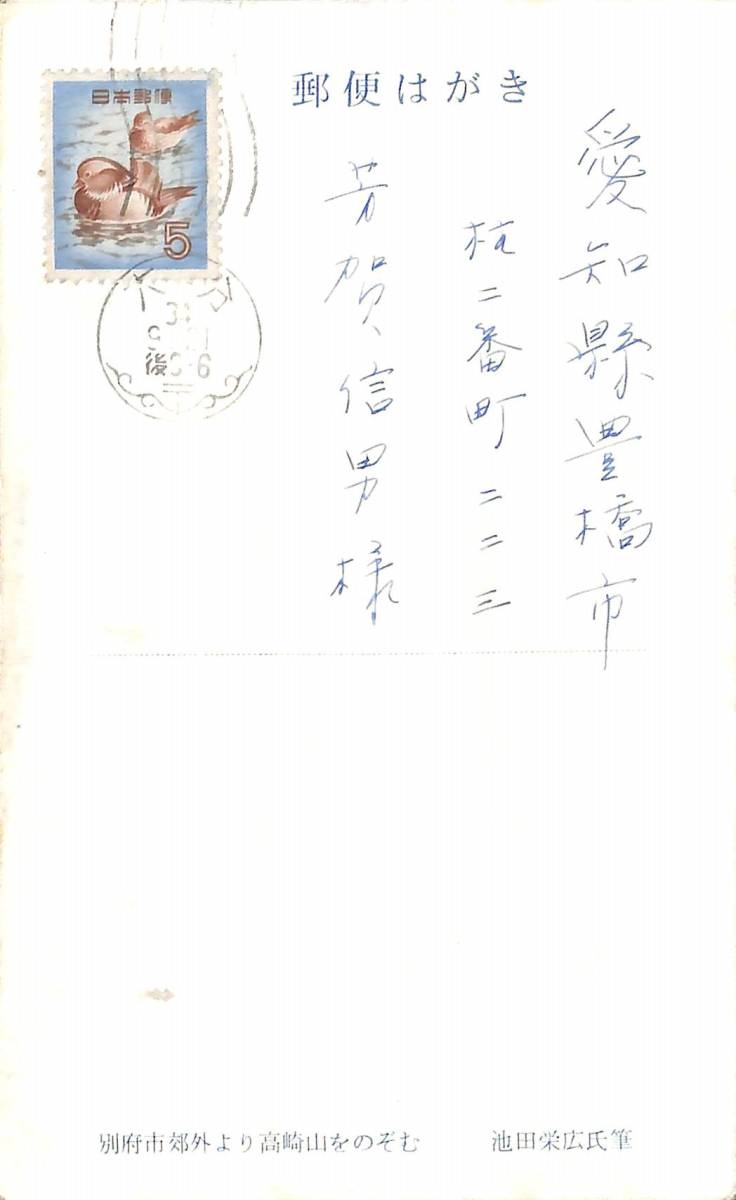 郵便はがき
日本郵便
5
大分
後
愛知縣豊橋市
柱二番町二二三
芳賀信男様
別府市郊外より高崎山をのぞむ 池田栄広氏筆